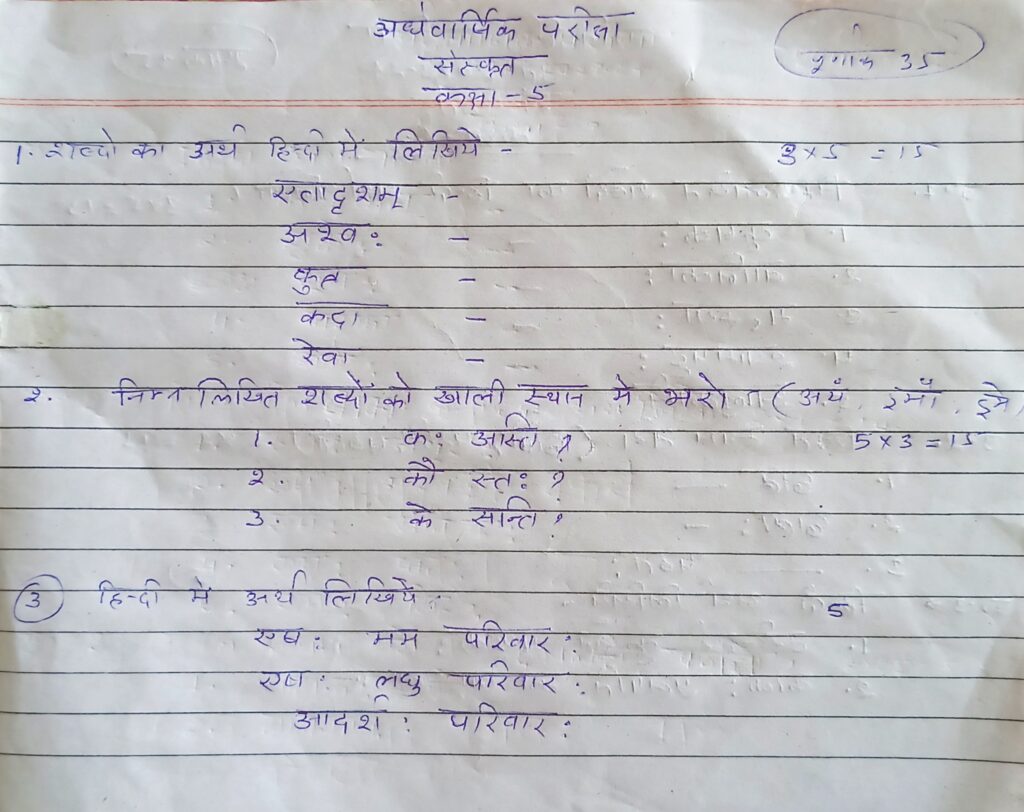 अर्धवार्षिक परीक्षा
संस्कृत
कक्षा - 5
पूर्णांक 35
1. शब्दो का अर्थ हिन्दी में लिखिये - 3 × 5 = 15
एतादृशम् -
अश्व: -
कुत्र -
कदा -
रेवा -
2. निम्न लिखित शब्दों को खाली स्थान मे भरो (अयं, इमाँ, इमे,
1. क: अस्ति ? 5 × 3 = 15
2. कौ स्त: ?
3. के सन्ति ?
3 हिन्दी में अर्थ लिखिये : 5
एष: मम परिवार:
एष: लघु परिवार:
आदर्श: परिवार: